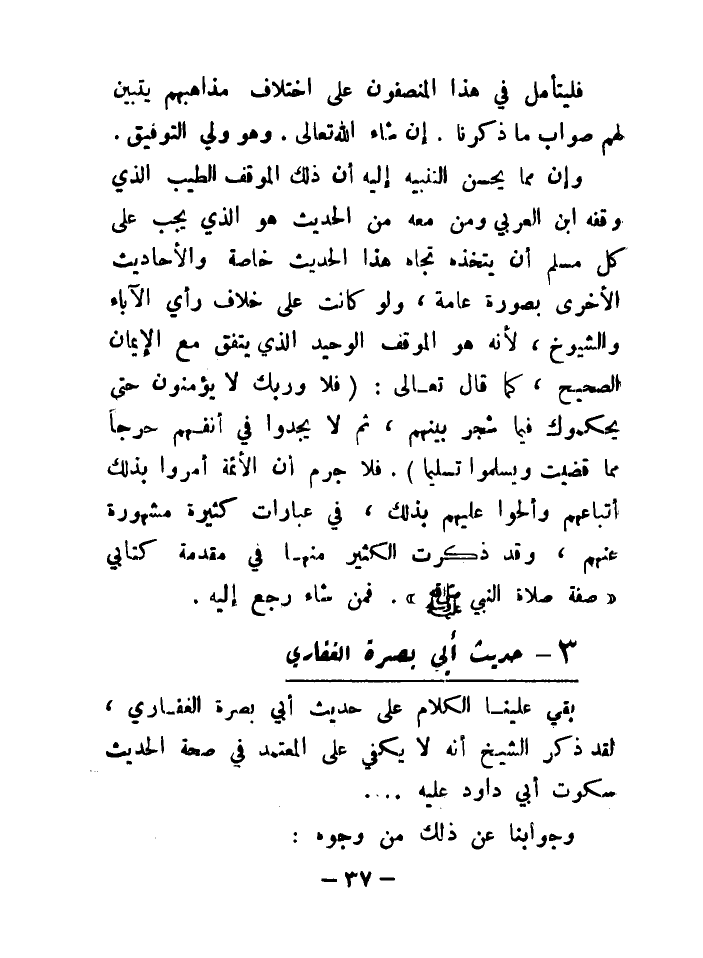 فليتأمل في هذا المنصفون على اختلاف مذاهبهم يتبين
لهم صواب ما ذكرنا . إن شاء الله تعالى . وهو ولي التوفيق .
وإن مما يحسن التنبيه إليه أن ذلك الموقف الطيب الذي
وقفه ابن العربي ومن معه من الحديث هو الذي يجب على
كل مسلم أن يتخذه تجاه هذا الحديث خاصة والأحاديث
الأخرى بصورة عامة ، ولو كانت على خلاف رأي الآباء
والشيوخ ، لأنه هو الموقف الوحيد الذي يتفق مع الإيمان
الصحيح ، كما قال تعـالى : ( فلا وربك لا يؤمنون حتى
يحكموك فيما شجر بينهم ، ثم لا يجدوا في أنفـهم حرجاً
مما قضيت ويسلموا تسليما ) . فلا جرم أن الأئمة أمروا بذلك
أتباعهم وألحوا عليهم بذلك ، في عبارات كثيرة مشهورة
عنهم ، وقد ذكرت الكثير منهـا في مقدمة كتابي
« صفة صلاة النبي ﷺ » . فمن شاء رجع إليه .
٣ – حديث أبي بصرة الغفاري
بقي علينـا الكلام على حديث أبي بصرة الغفـاري ،
لقد ذكر الشيخ أنه لا يكفي على المعتمد في صحة الحديث
سكوت أبي داود عليه ....
وجوابنا عن ذلك من وجوه :
– ٣٧ –